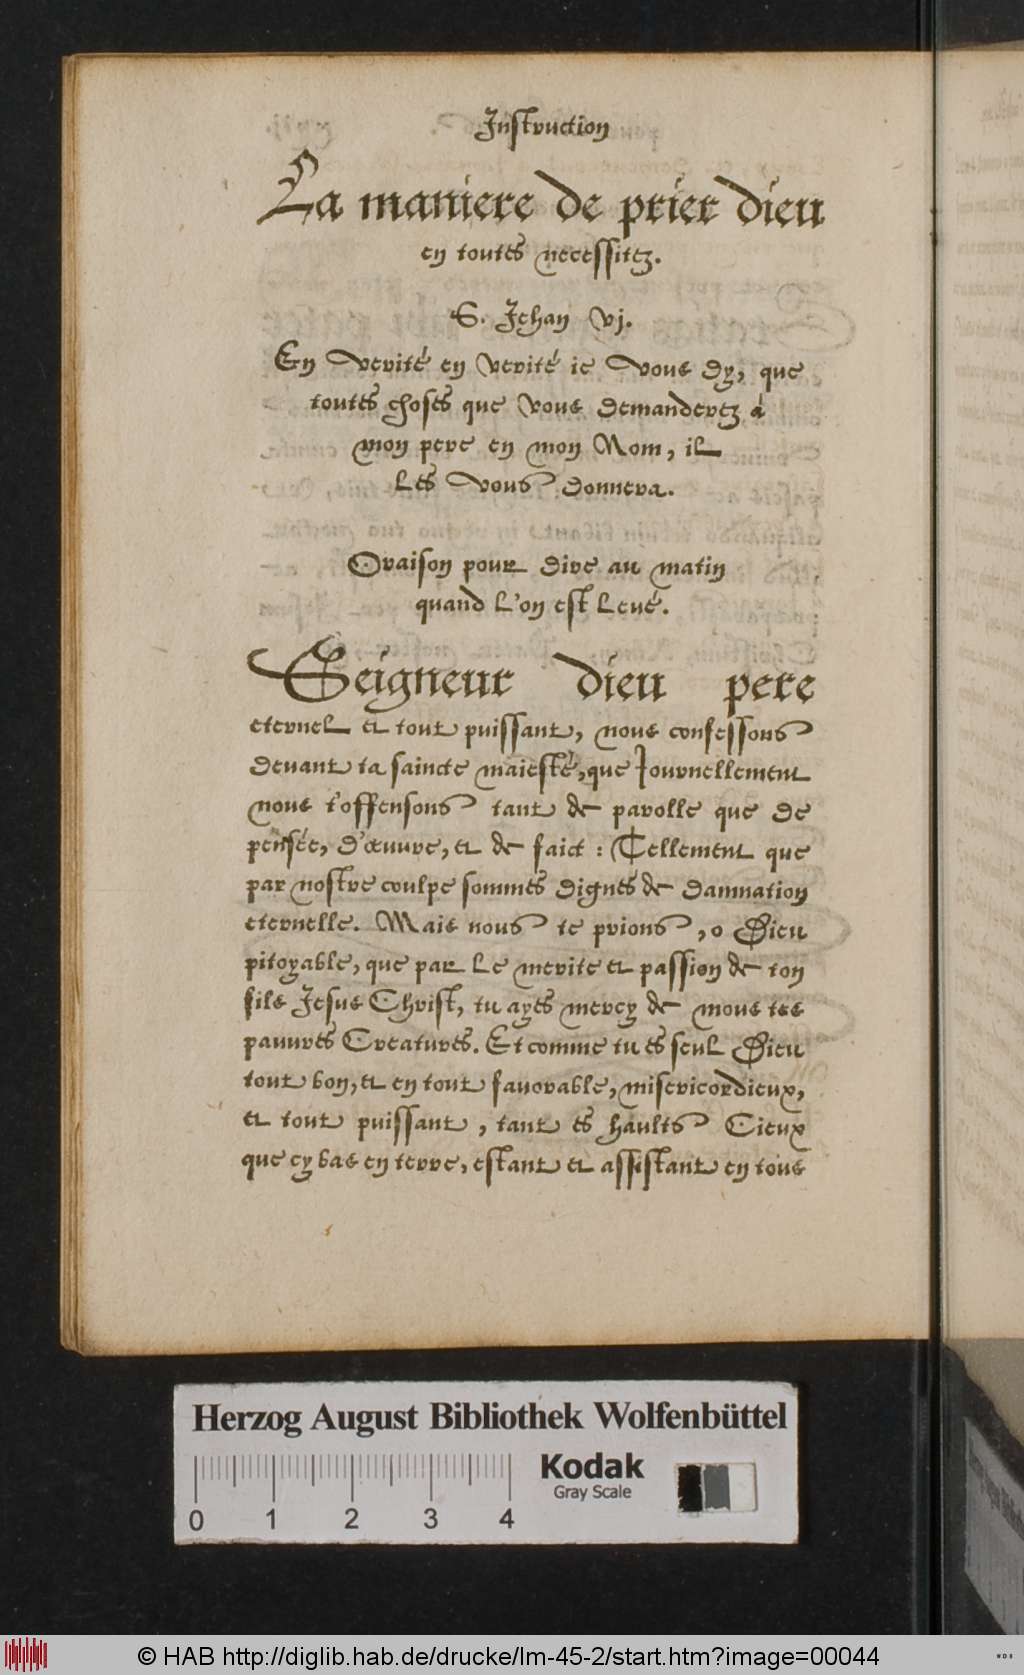 Instruction
La maniere de prier dieu
en toutes necessitez.
S. Jehan vj.
En verité en verité ie vous dy, que
toutes choses que vous demanderez à
mon pere en mon Nom, il
les vous donnera.
Oraison pour dire au matin
quand l'on est leué.
Seigneur dieu pere
eternel et tout puissant, nous confessons
deuant ta saincte maiesté, que Journellement
nous t'offensons tant de parolle que de
pensée, d'œuure, et de faict : Tellement que
par nostre coulpe sommes dignes de damnation
eternelle. Mais nous te prions, o Dieu
pitoyable, que par le merite et passion de ton
filz Jesus Christ, tu ayes mercy de nous tes
pauures Creatures. Et comme tu es seul Dieu
tout bon, et en tout fauorable, misericordieux,
et tout puissant, tant es haults Cieux
que cy bas en terre, estant et assistant en tous
Herzog August Bibliothek Wolfenbüttel
Kodak
Gray Scale
0 1 2 3 4
© HAB http://diglib.hab.de/drucke/lm-45-2/start.htm?image=00044